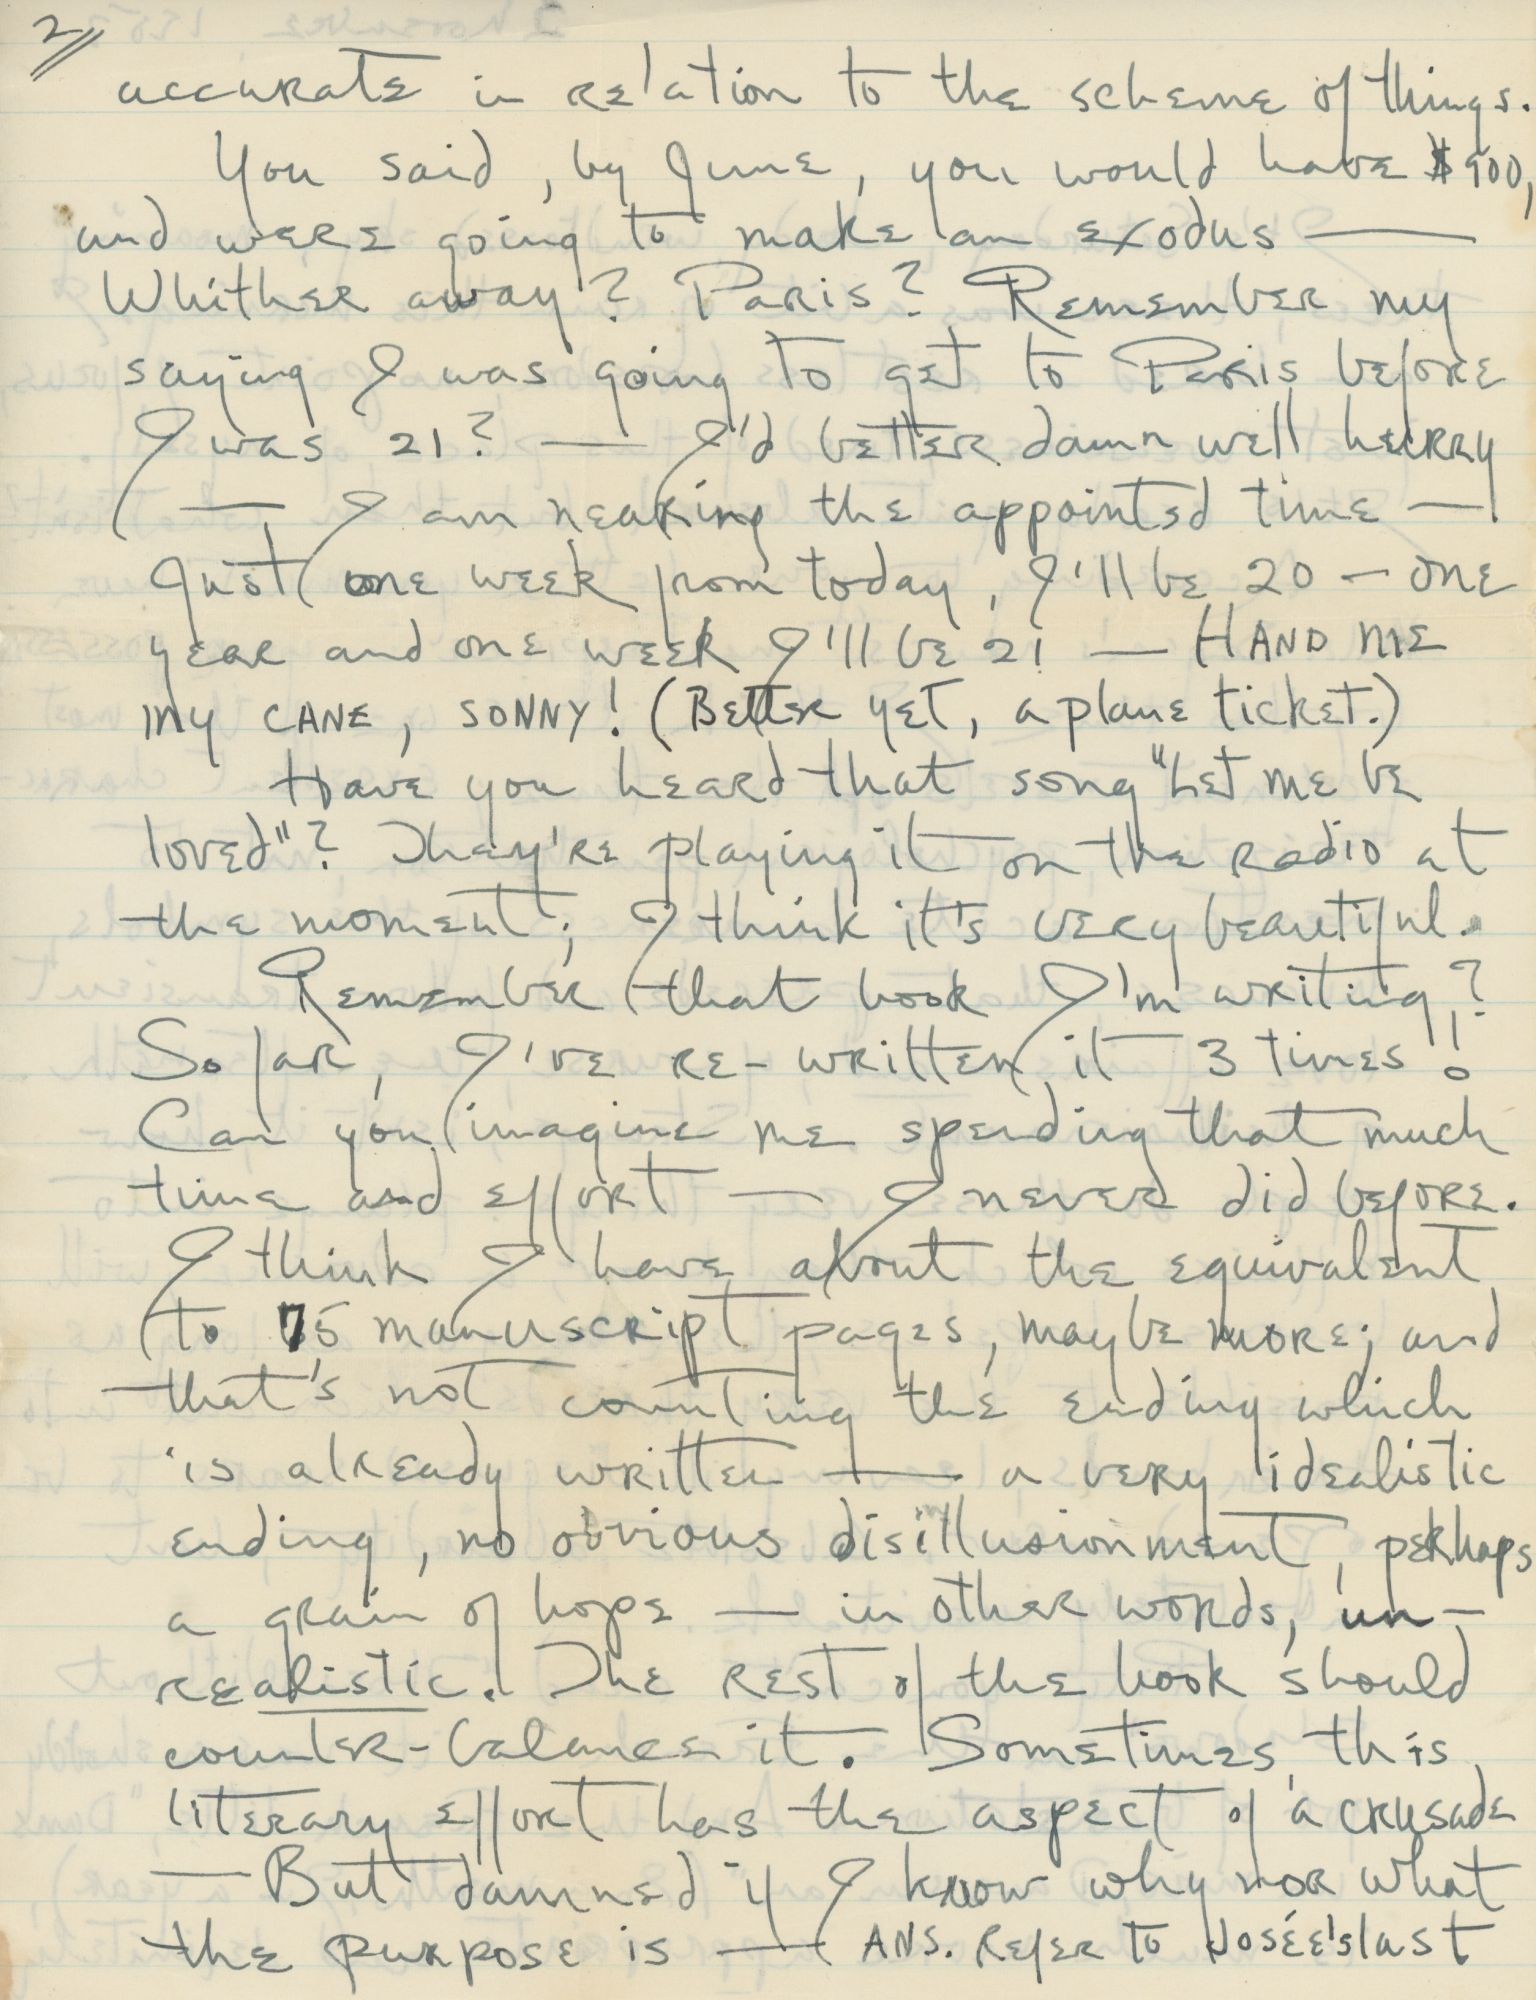 2
accurate in relation to the scheme of things.
You said, by June, you would have $900,
and were going to make an exodus —
Whither away? Paris? Remember my
saying I was going to get to Paris before
I was 21? — I'd better damn well hurry
— I am nearing the appointed time —
Just one week from today, I'll be 20 — one
year and one week I'll be 21 — HAND ME
my CANE, SONNY! (Better yet, a plane ticket.)
Have you heard that song "Let me be
loved"? They're playing it on the radio at
the moment; I think it's very beautiful.
Remember that book I'm writing?
So far, I've re-written it 3 times!
Can you imagine me spending that much
time and effort — I never did before.
I think I have about the equivalent
to 75 manuscript pages, maybe more; and
that's not counting the ending which
is already written — a very idealistic
ending, no obvious disillusionment, perhaps
a grain of hope — in other words, un-
realistic. The rest of the book should
counter-balance it. Sometimes, this
literary effort has the aspect of a crusade
— But damned if I know why nor what
the purpose is — ANS. Refer to Josée's last